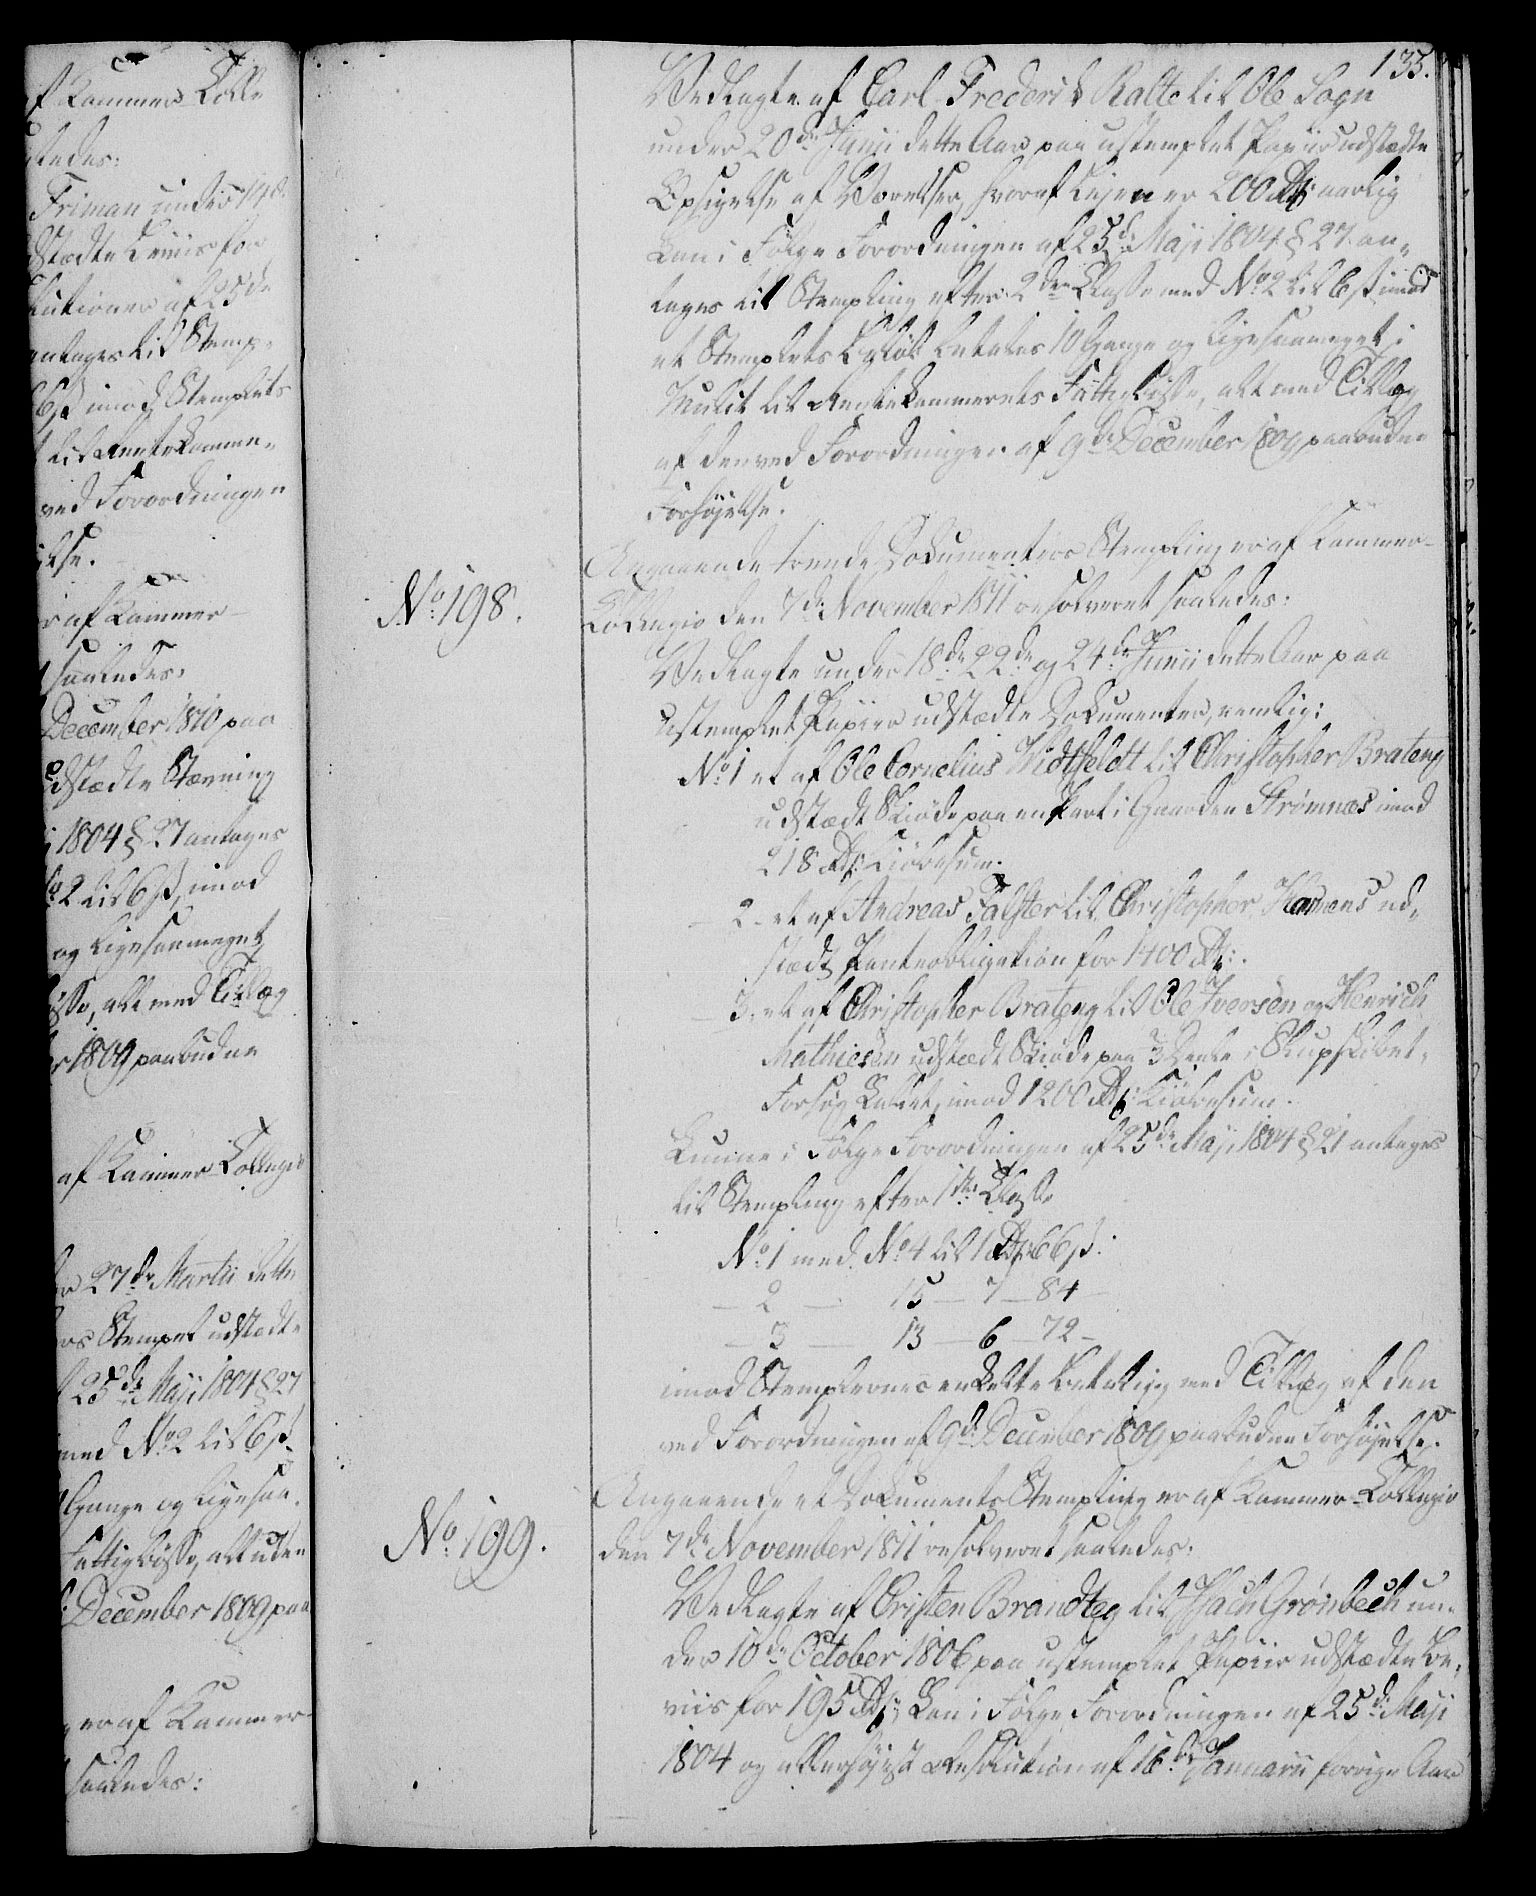 f Kammer Colle
stedes:
Friman under 14d:
dstædte Beviis for
lutioner af 25de
antages til Stemp-
6 ß imod Stemplets
til Rentekamme-
ved Forordningen
else.
r af Kammer-
saaledes:
December 1810 paa
udstædte Stævning
i 1804 § 27 antages
No 2 til 6 ß, imod
og ligesaameget
øsse, alt med Tillæg
r 1809 paabudne
af Kammer Collegio
er 27de Martii dette
os Stempel udstædte
f 25de Maji 1804 § 27
med No 2 til 6 ß
Gange og ligesaa-
Fattigbøsse, alt uden
December 1809 paa
er af Kammer-
saaledes:
135.
Vedlagte af Carl Frederik Ralte til Ole Sogn
under 20de Junii dette Aar paa ustemplet Papiir udstædte
Opsigelse af Værelser, hvoraf Lejen er 200 Rd: aarlig
kan i Følge Forordningen af 25de Maji 1804 § 27 an-
tages til Stempling efter 2den Classe med No 2 til 6 ß imod
at Stemplets Beløb betales 10 Gange og ligesaameget i
Mulct til Rentekammerets Fattigbøsse, alt med Tillæg
af den ved Forordningen af 9de December 1809 paabudne
Forhøjelse.
No 198.
Angaaende trende Dokumenters Stempling er af Kammer-
Collegio den 7de November 1811 resolveret saaledes:
Vedlagte under 18de 22de og 24de Junii dette Aar paa
ustemplet Papiir udstædte Dokumenter, nemlig:
No 1 et af Ole Cornelius Widtfeldt til Christopher Brateng
udstædt Skiøde paa en Part i Gaarden Strømnæs imod
218 Rd: Kiøbesum.
- 2 - et af Andreas Falster til Christopher Hannens ud-
stædt Panteobligation for 1400 Rd:.
- 3. et af Christopher Brateng til Ole Iversen og Henrich
Mathiesen udstædt Skiøde paa 2/3 Deele i Slupskibet
Forsøg kaldet, imod 1200 Rd: Kiøbesum.
Kunne i Følge Forordningen af 25de Maji 1804 § 21 antages
til Stempling efter 1ste Classe
No 1 med No 4 til 1 Rd: 66 ß:
— 2 — 15 — 7 — 84 —
— 3 — 13 — 6 — 72 —
imod Stemplernes enkelte Betaling med Tillæg af den
ved Forordningen af 9de December 1809 paabudne Forhøjelse.
No 199.
Angaaende et Dokuments Stempling er af Kammer-Collegio
den 7de November 1811 resolveret saaledes:
Vedlagte af Cristen Brandteg til Isach Grønbech un-
der 10de October 1806 paa ustemplet Papiir udstædte Be-
viis for 195 Rd: kan i Følge Forordningen af 25de Maji
1804 og allerhøjeste Resolution af 16de Januarii forrige Aar